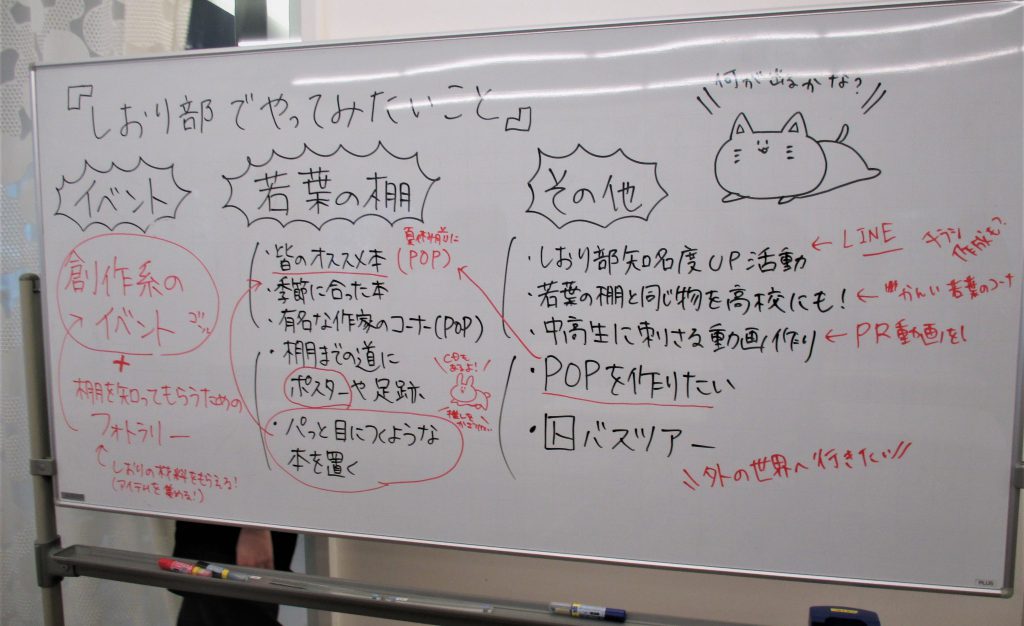 『しおり部でやってみたいこと』
何が出るかな?
イベント
創作系の
イベント
+
棚を知ってもらうための
フォトラリー
しおりの材料をもらえる!
(アイテムを集める!)
若葉の棚
夏休み前に
(POP)
・皆のオススメ本
・季節に合った本
・有名な作家のコーナー(POP)
・棚までの道に
ポスターや足跡、
CDも
あるよ!
推しを
・パっと目につくような
本を置く
その他
・しおり部知名度UP活動
← LINE
チラシ
作成も?
・若葉の棚と同じ物を高校にも!
← かんい若葉のコーナー
・中高生に刺さる動画作り
← PR動画を
・POPを作りたい
・図バスツアー
\\外の世界へ行きたい//
PLUS